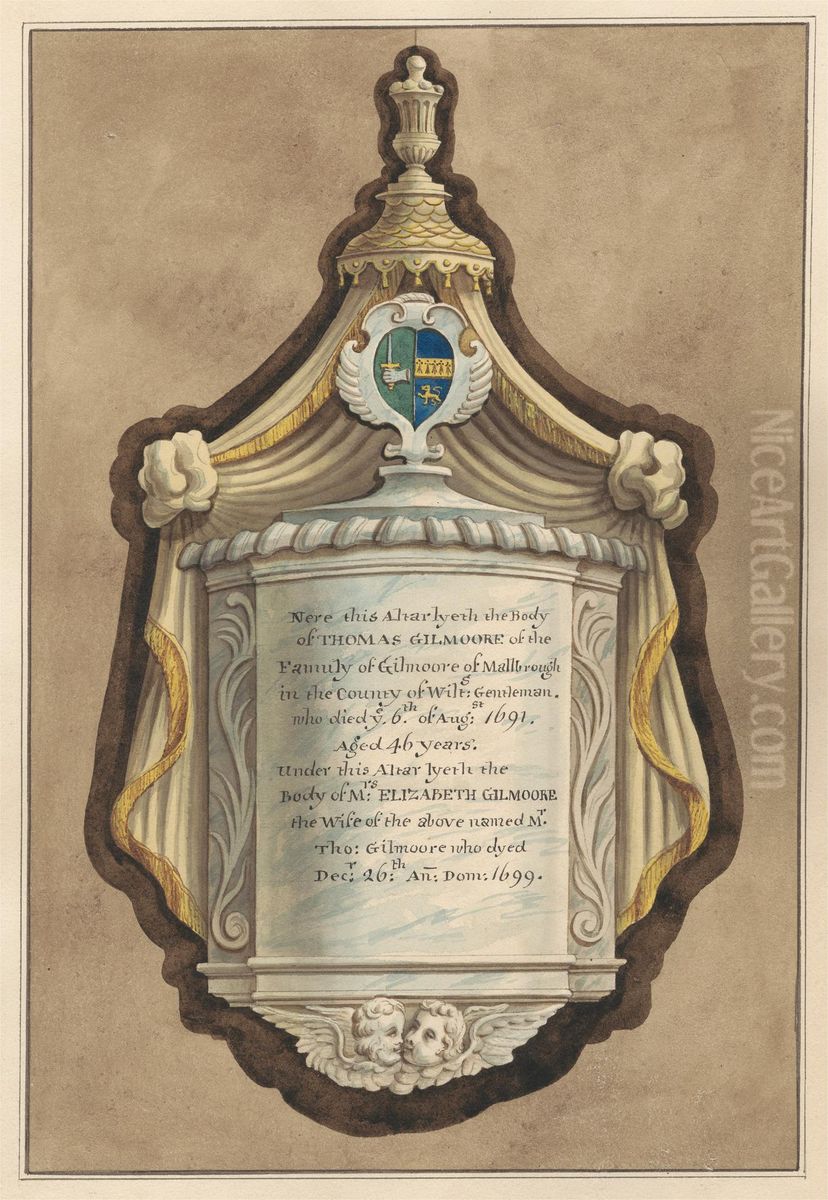 Nere this Altar lyeth the Body
of THOMAS GILMOORE of the
Family of Gilmoore of Mallbrough
in the County of Wilts: Gentleman.
who died yᵉ. 6th. of Augst: 1691.
Aged 46 years.
Under this Altar lyeth the
Body of Mrs: ELIZABETH GILMOORE
the Wife of the above named Mr.
Tho: Gilmoore who dyed
Decr: 26th: An̄: Dom: 1699.
NiceArtGallery.com